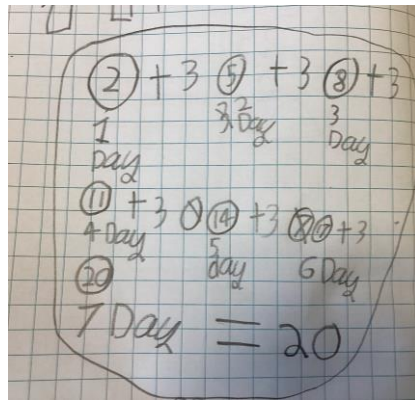 2 + 3 5 + 3 8 + 3
1 2 3
Day Day Day
11 + 3 14 + 3 17 + 3
4 Day 5 6 Day
day
20
7 Day = 20